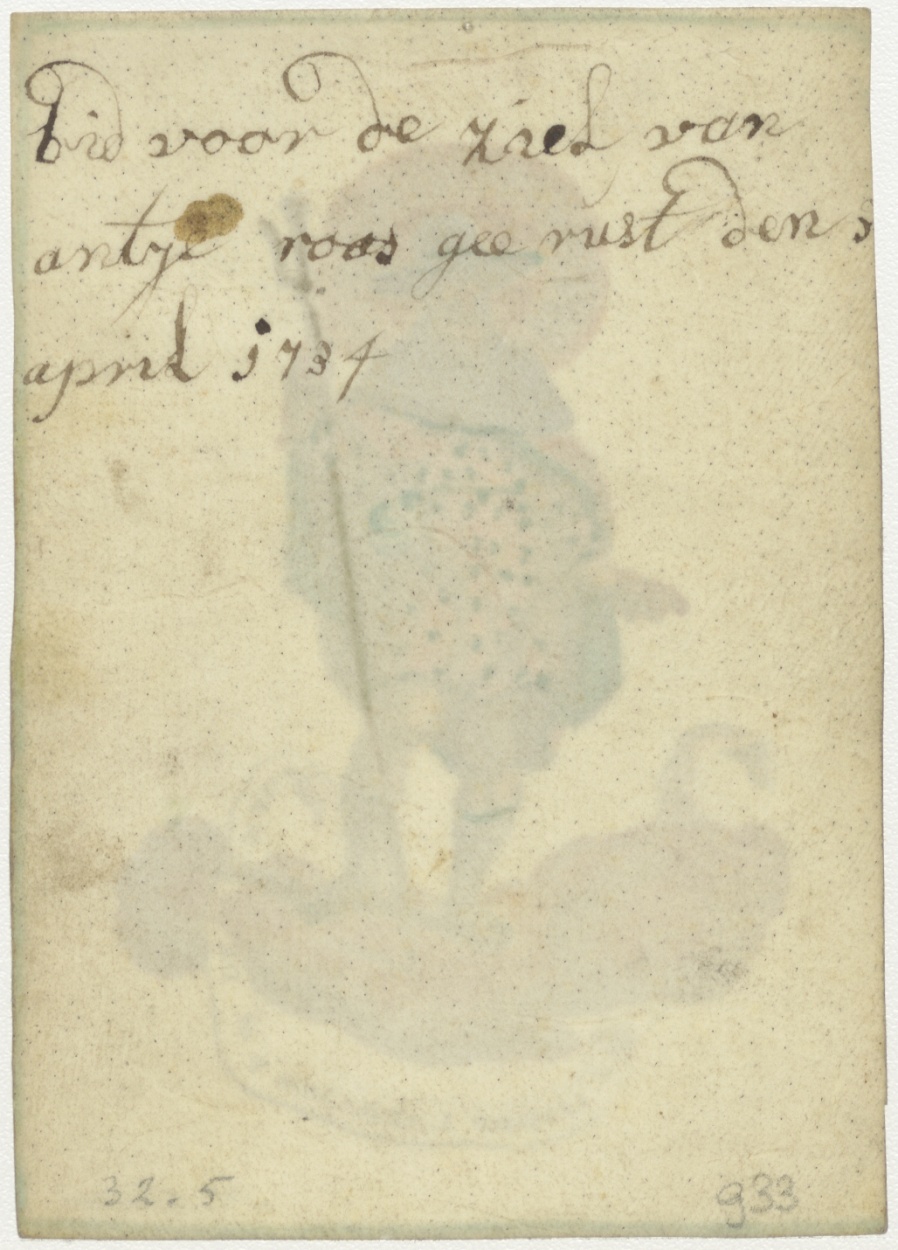 bid voor de ziel van
antje roos gee rust den
april 1734
32.5
933